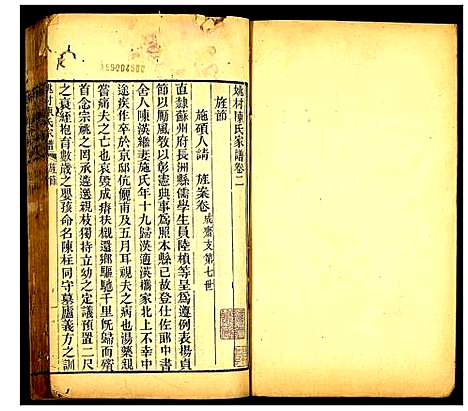 姚村陳氏家譜卷二
旌節
施碩人請 旌案卷 成齋支第七世
直隸蘇州府長洲縣儒學生員陸楨等呈爲遵例表揚貞
節以勵風教以彰憲典事爲照本縣已故登仕佐郎中書
舍人陳漢繼妻施氏年十九歸漢適漢攜家北上不幸中
途疾作卒於京邸伉儷甫及五月耳視夫之病也湯藥親
嘗痛夫之亡也哀毀成瘠扶櫬還鄉驅馳千里旣歸而殯
首念宗祧之罔承遴選親枝獨持立幼之定議預置明
之哀絰袍育數歲之嬰孩命名陳柱同守墓廬義方之訓
姚村陳氏家譜 旌節